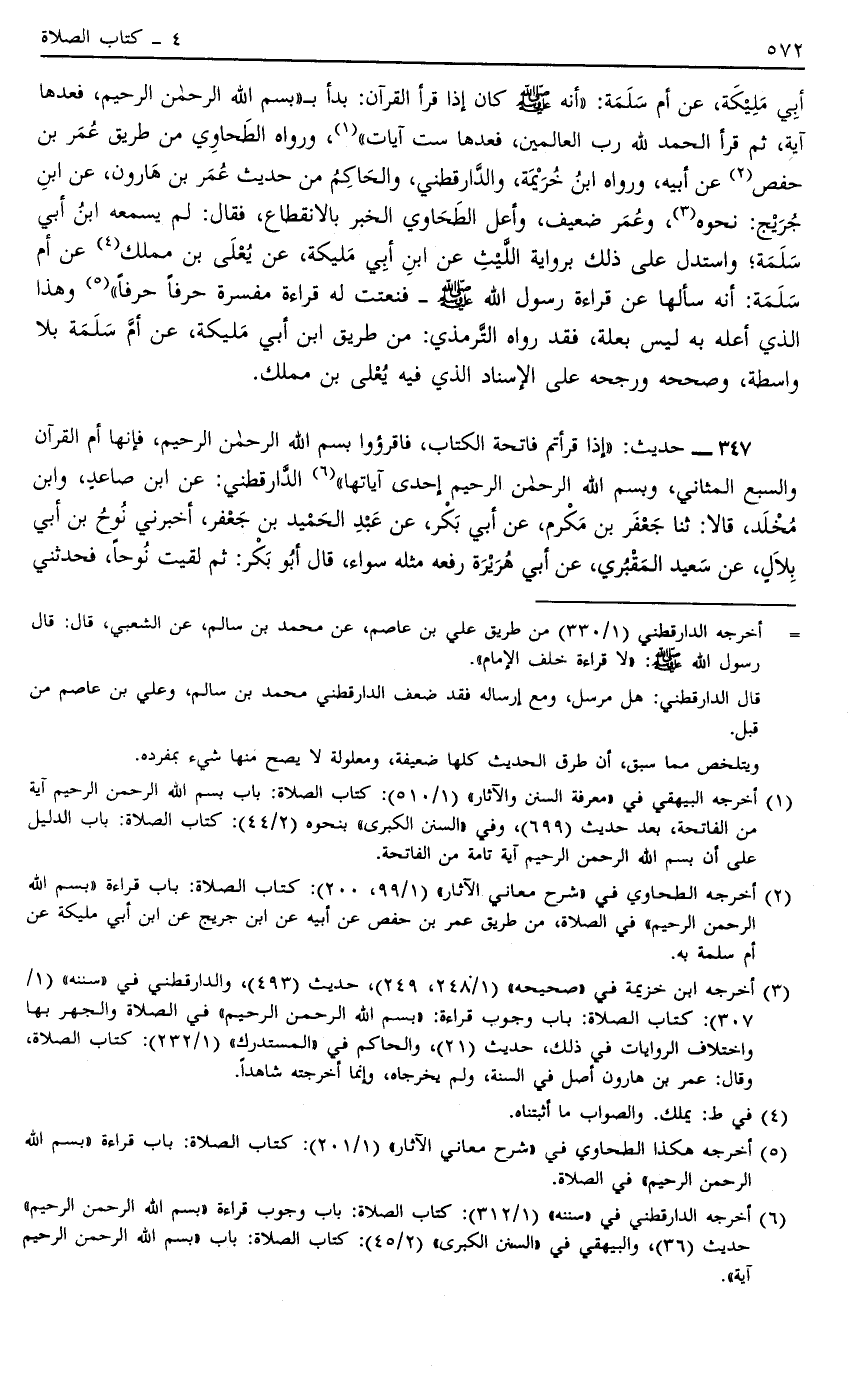 ٥٧٢ ٤ ـ كتاب الصلاة
أبِي مَلِيْكَة، عن أم سَلَمَة: «أنه ﷺ كان إذا قرأ القرآن: بدأ بـ«بسم الله الرحمٰن الرحيم، فعدها
آية، ثم قرأ الحمد لله رب العالمين، فعدها ست آيات»(١)، ورواه الطَحاوِي من طريق عُمَر بن
حفص(٢) عن أبيه، ورواه ابنُ خُزَيْمَة، والدَّارقطني، والحَاكِمُ من حديث عُمَر بن هَارون، عن ابنِ
جُرَيْج: نحوه(٣)، وعُمَر ضعيف، وأعل الطَحَاوي الخبر بالانقطاع، فقال: لم يسمعه ابنُ أبي
سَلَمَة؛ واستدل على ذلك برواية اللَّيْثِ عن ابنِ أبِي مَليكة، عن يُعْلَى بن مملك(٤) عن أم
سَلَمَة: أنه سألها عن قراءة رسول الله ﷺ ـ فنعتت له قراءة مفسرة حرفاً حرفاً»(٥) وهذا
الذي أعله به ليس بعلة، فقد رواه التَّرمذي: من طريق ابن أبي مَليكة، عن أمَّ سَلَمَة بلا
واسطة، وصححه ورجحه على الإسناد الذي فيه يُعْلى بن مملك.
٣٤٧ ـ حديث: «إذا قرأتم فاتحة الكتاب، فاقرؤوا بسم الله الرحمٰن الرحيم، فإنها أم القرآن
والسبع المثاني، وبسم الله الرحمٰن الرحيم إحدى آياتها»(٦) الدَّارقطني: عن ابن صاعدٍ، وابن
مُخْلَد، قالا: ثنا جَعْفَر بن مَكْرم، عن أبي بَكْر، عن عَبْدِ الحَمْيد بن جَعْفر، أخبرني نُوحُ بن أبي
بِلَالٍ، عن سَعيد المَقْبُري، عن أبي هُرَيْرَة رفعه مثله سواء، قال أبُو بَكْر: ثم لقيت نُوحاً، فحدثني
= أخرجه الدارقطني (٣٣٠/١) من طريق علي بن عاصم، عن محمد بن سالم، عن الشعبي، قال: قال
رسول الله ﷺ: «لا قراءة خلف الإمام».
قال الدارقطني: هل مرسل، ومع إرساله فقد ضعف الدارقطني محمد بن سالم، وعلي بن عاصم من
قبل.
ويتلخص مما سبق، أن طرق الحديث كلها ضعيفة، ومعلولة لا يصح منها شيء بمفرده.
(١) أخرجه البيهقي في «معرفة السنن والآثار» (٥١٠/١): كتاب الصلاة: باب بسم الله الرحمن الرحيم آية
من الفاتحة، بعد حديث (٦٩٩)، وفي «السنن الكبرى» بنحوه (٤٤/٢): كتاب الصلاة: باب الدليل
على أن بسم الله الرحمن الرحيم آية تامة من الفاتحة.
(٢) أخرجه الطحاوي في «شرح معاني الآثار» (٩٩/١، ٢٠٠): كتاب الصلاة: باب قراءة «بسم الله
الرحمن الرحيم» في الصلاة، من طريق عمر بن حفص عن أبيه عن ابن جريج عن ابن أبي مليكة عن
أم سلمة به.
(٣) أخرجه ابن خزيمة في «صحيحه» (٢٤٨/١، ٢٤٩)، حديث (٤٩٣)، والدارقطني في «سننه» (١/
٣٠٧): كتاب الصلاة: باب وجوب قراءة: «بسم الله الرحمن الرحيم» في الصلاة والجهر بها
واختلاف الروايات في ذلك، حديث (٢١)، والحاكم في «المستدرك» (٢٣٢/١): كتاب الصلاة،
وقال: عمر بن هارون أصل في السنة، ولم يخرجاه، وإنما أخرجته شاهداً.
(٤) في ط: يملك. والصواب ما أثبتناه.
(٥) أخرجه هكذا الطحاوي في «شرح معاني الآثار» (٢٠١/١): كتاب الصلاة: باب قراءة «بسم الله
الرحمن الرحيم» في الصلاة.
(٦) أخرجه الدارقطني في «سننه» (٣١٢/١): كتاب الصلاة: باب وجوب قراءة «بسم الله الرحمن الرحيم»
حديث (٣٦)، والبيهقي في «السنن الكبرى» (٤٥/٢): كتاب الصلاة: باب «بسم الله الرحمن الرحيم
آية».